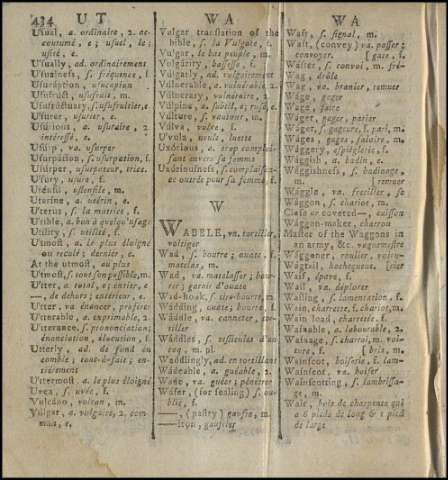 434 UT WA WA
Usual, a. ordinaire, 2. ac-
coutumé, e; usuel, le;
usité, e.
Usually, ad. ordinairement
Usualness, s. fréquence, f.
Usurpation, usucapion
Usufruct, usufruit, m.
Usufructuary, s. usufruitier, e
Usurer, usurier, e
Usurious, a. usuraire, 2.
intéressé, e.
Usurp, va. usurper
Usurpation, s. usurpation, f.
Usurper, usurpateur, trice.
Usury, usure, f.
Utensil, ustensile, m.
Uterine, a. utérin, e
Uterus, s. la matrice, f.
Utible, a. bon à quelqu'usage
Utility, s. utilité, f.
Utmost, a. le plus éloigné
ou reculé; dernier, e.
At the utmost, au plus
Utmost, s. tout son possible, m.
Utter, a. total, e; entier, e
—, de dehors; extérieur, e.
Utter, va. énoncer, proférer
Utterable, a. exprimable, 2.
Utterance, s. prononciation;
énonciation, élocution, f.
Utterly, ad. de fond en
comble; tout-à-fait; en-
tièrement
Uttermost, a. le plus éloigné
Uvea, s. uvée, f.
Vulcano, volcan, m.
Vulgar, a. vulgaire, 2. com-
mun, e.
Vulgar translation of the
bible, s. la Vulgate, f.
Vulgar, le bas peuple, m.
Vulgarity, bassesse, f.
Vulgarly, ad. vulgairement
Vulnerable, a. vulnérable, 2.
Vulnerary, vulnéraire, 2.
Vulpine, a. subtil, e; rusé, e.
Vulture, s. vautour, m.
Vulva, vulve, f.
Uvula, uvule, luette
Uxorious, a. trop complai-
sant envers sa femme
Uxoriousness, s. complaisan-
ce outrée pour sa femme, f.
W
WABBLE, vn. tortiller,
voltiger
Wad, s. bourre; ouate, f.
matelas, m.
Wad, va. matelasser; bour-
rer; garnir d'ouate
Wad-hook, s. tire-bourre, m.
Wadding, ouate; bourre, f.
Waddle, va. canneter, tor-
tiller
Waddles, s. testicules d'un
coq, m. pl.
Waddlingly, ad. en tortillant
Wadeable, a. guéable, 2.
Wade, va. guéer; pénétrer
Wafer, (for sealing) s. ou-
blie, f.
—, (pastry) gaufre, m.
—iron, gaufrier
Waft, s. signal, m.
Waft, (convey) va. passer;
convoyer. [gate, f.
Wafter, s. convoi, m. fré-
Wag, drôle
Wag, va. branler, remuer
Wage, gager
Wage, faire
Wager, gager, parier
Wager, s. gageure, f. pari, m.
Wages, gages, salaire, m.
Waggery, espièglerie, f.
Waggish, a. badin, e.
Waggishness, s. badinage,
m. remuer
Waggle, va. frétiller, se
Waggon, s. chariot, m.
Close or covered—, caisson
Waggon-maker, charron
Master of the Waggons in
an army, &c. vaguemestre
Waggoner, roulier, voitu-
Wagtail, hochequeue, [rier
Waif, épave, f.
Wail, va. déplorer
Wailing, s. lamentation, f.
Wain, charrette, f. chariot, m.
Wain load, charretée, f.
Wainable, a. labourable, 2.
Wainage, s. charroi, m. voi-
ture, f. [bris, m.
Wainscot, boiserie, f. lam-
Wainscot, va. boiser
Wainscotting, s. lambrissa-
ge, m.
Wair, bois de charpente qui
a 6 pieds de long & 1 pied
de large